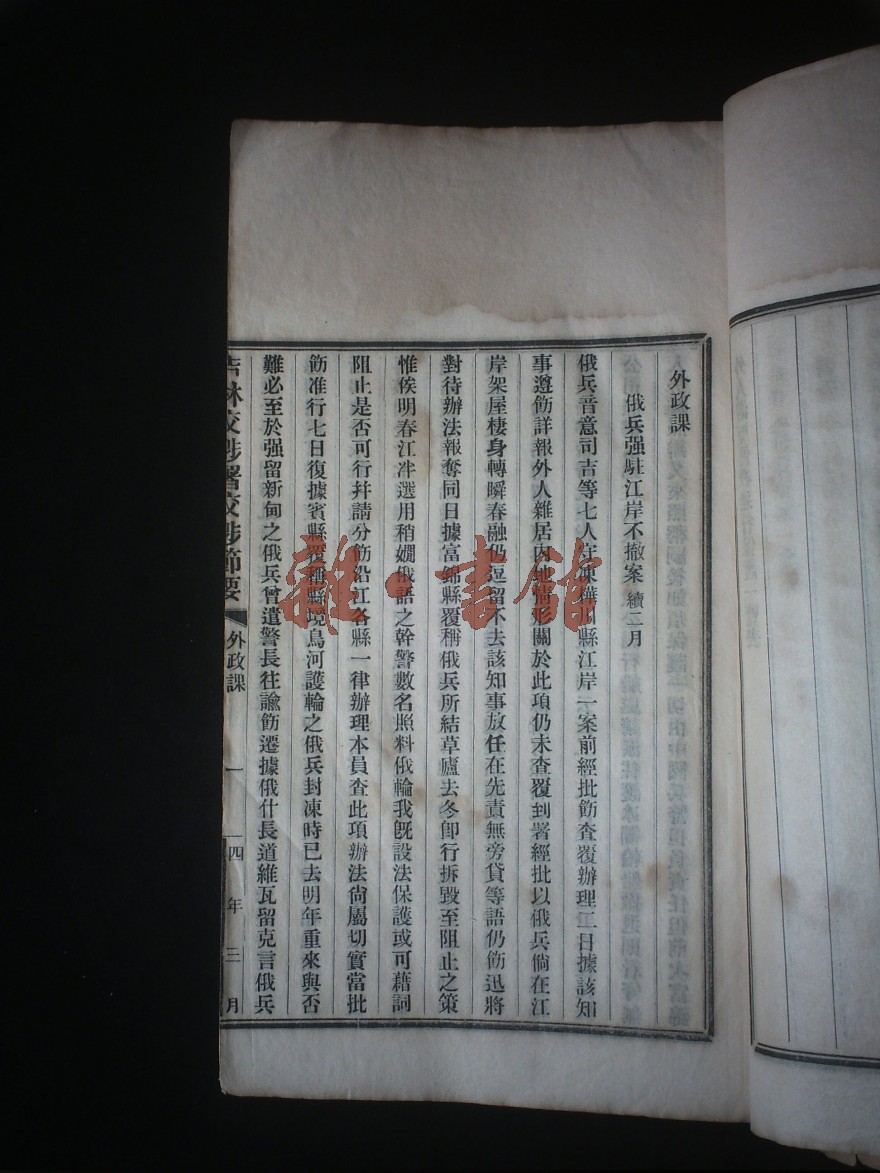 外政課
俄兵强駐江岸不撤案 續二月
俄兵普意司吉等七人守凍樺川縣江岸一案前經批飭查覆辦理二日據該知
事遵飭詳報外人雜居内地情形關於此項仍未查覆到署經批以俄兵倘在江
岸架屋棲身轉瞬春融仍逗留不去該知事放任在先責無旁貸等語仍飭迅將
對待辦法報奪同日據富錦縣覆稱俄兵所結草廬去冬卽行拆毀至阻止之策
惟俟明春江泮選用稍嫺俄語之幹警數名照料俄輪我旣設法保護或可藉詞
阻止是否可行幷請分飭沿江各縣一律辦理本員查此項辦法尙屬切實當批
飭准行七日復據賓縣覆稱縣境鳥河護輪之俄兵封凍時已去明年重來與否
難必至於强留新甸之俄兵曾遣警長往諭飭遷據俄什長道維瓦留克言俄兵
吉林交涉署交涉節要 外政課 一 四年三月
雜·書館